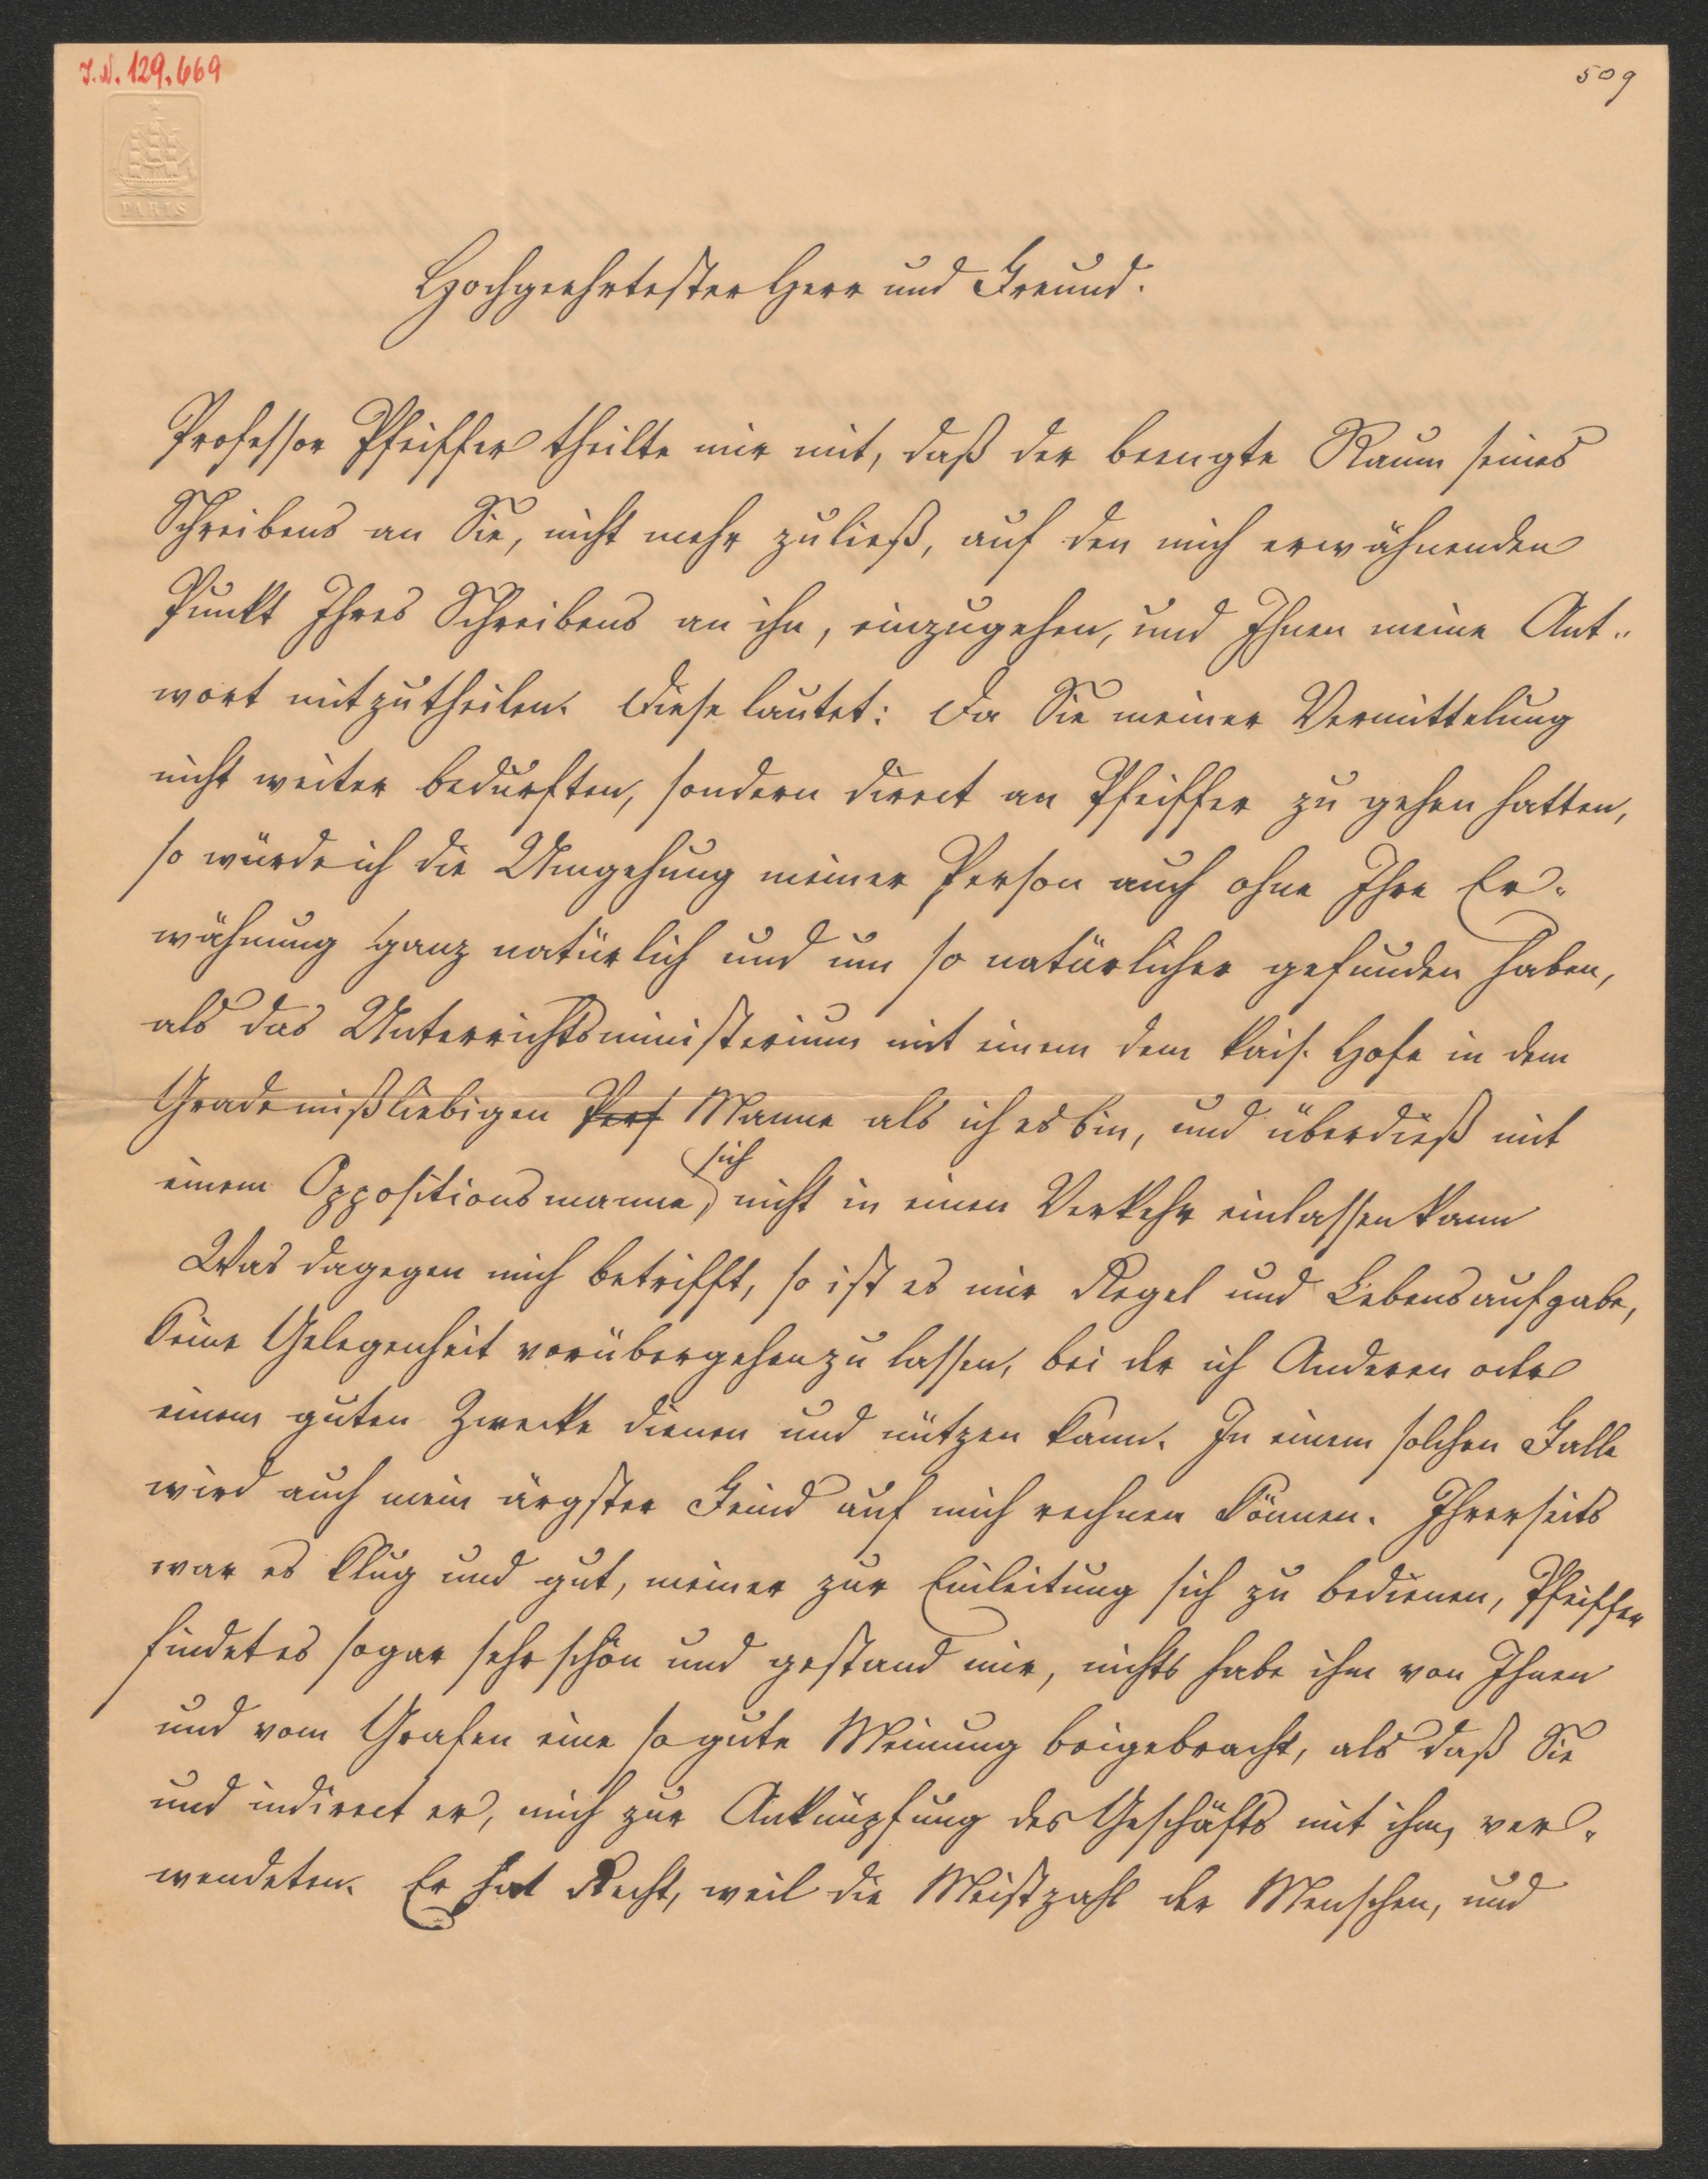 I.N. 129.669
509
PARIS
Hochgeehrtester Herr und Freund.
Professor Pfeiffer theilte mir mit, daß der beengte Raum seines
Schreibens an Sie, nicht mehr zuließ, auf den mich erwähnenden
Punkt Ihres Schreibens an ihn, einzugehen, und Ihnen meine Ant-
wort mitzutheilen. Diese lautet: Da Sie meiner Vermittelung
nicht weiter bedurften, sondern direct an Pfeiffer zu gehen hatten,
so würde ich die Umgehung meiner Person auch ohne Ihre Er-
wähnung ganz natürlich und um so natürlicher gefunden haben,
als das Unterrichtsministerium mit einem dem kais. Hofe in dem
Grade mißliebigen Pers Manne als ich es bin, und überdieß mit
einem Oppositionsmanne, sich nicht in einen Verkehr einlassen kann
Was dagegen mich betrifft, so ist es mir Regel und Lebensaufgabe,
keine Gelegenheit vorübergehen zu lassen, bei der ich Anderen oder
einem guten Zwecke dienen und nützen kann. In einem solchen Falle
wird auch mein ärgster Feind auf mich rechnen können. Ihrerseits
war es klug und gut, meiner zur Einleitung sich zu bedienen, Pfeiffer
findet es sogar sehr schön und gestand mir, nichts habe ihm von Ihnen
und vom Grafen eine so gute Meinung beigebracht, als daß Sie
und indirect er, mich zur Anknüpfung des Geschäfts mit ihm, ver-
wendeten. Er hat Recht, weil die Meistzahl der Menschen, und